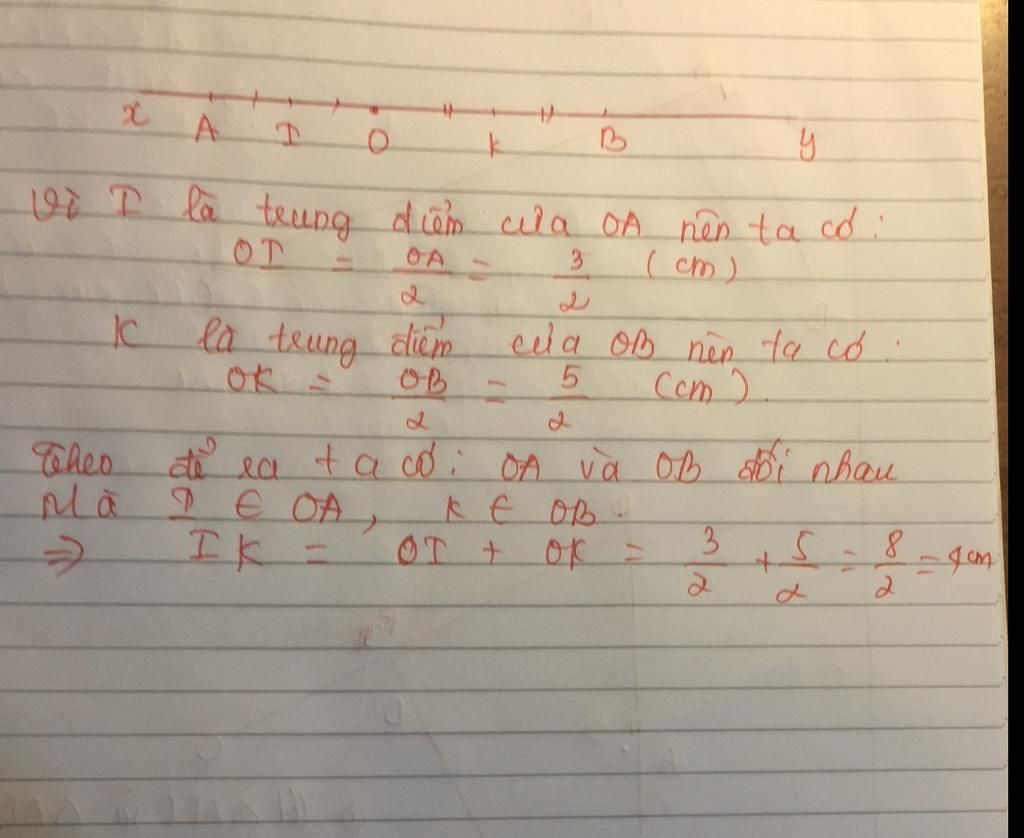 x A I O K B y
Vì I là trung điểm của OA nên ta có:
OI = OA/2 = 3/2 (cm)
K là trung điểm của OB nên ta có:
OK = OB/2 = 5/2 (cm).
Theo đề ra ta có: OA và OB đối nhau
Mà I ∈ OA, K ∈ OB.
=> IK = OI + OK = 3/2 + 5/2 = 8/2 = 4cm